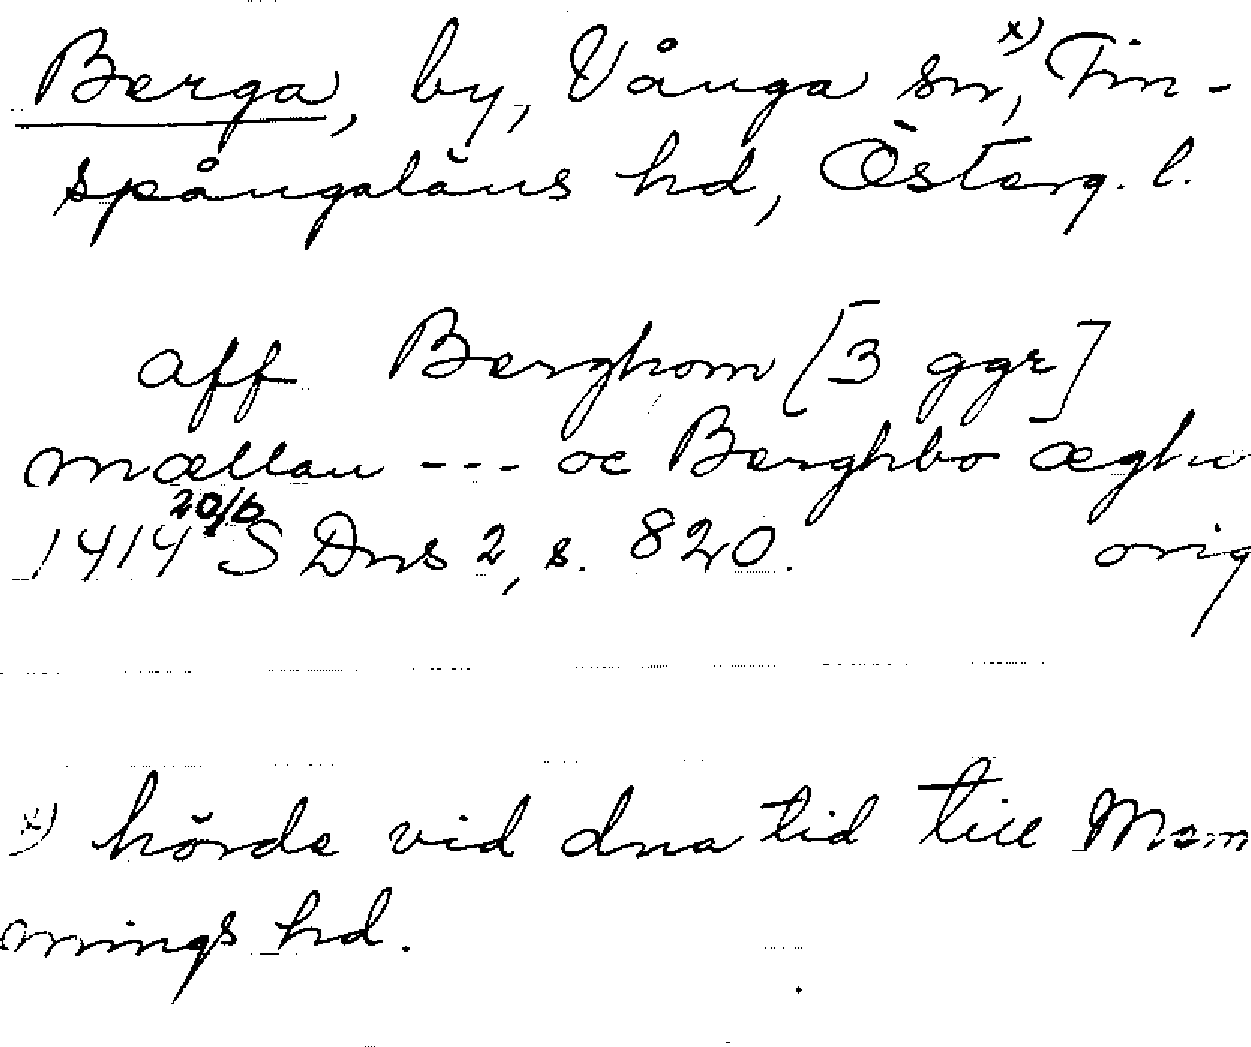 Berga, by, Vånga sn,x) Fin-
spångaläns hd, Österg. l.
aff Berghom [3 ggr]
mællan --- oc Berghbo æghu
1414 20/6 S Dns 2, s. 820. orig
x) hörde vid dna tid till Mem
mings hd.